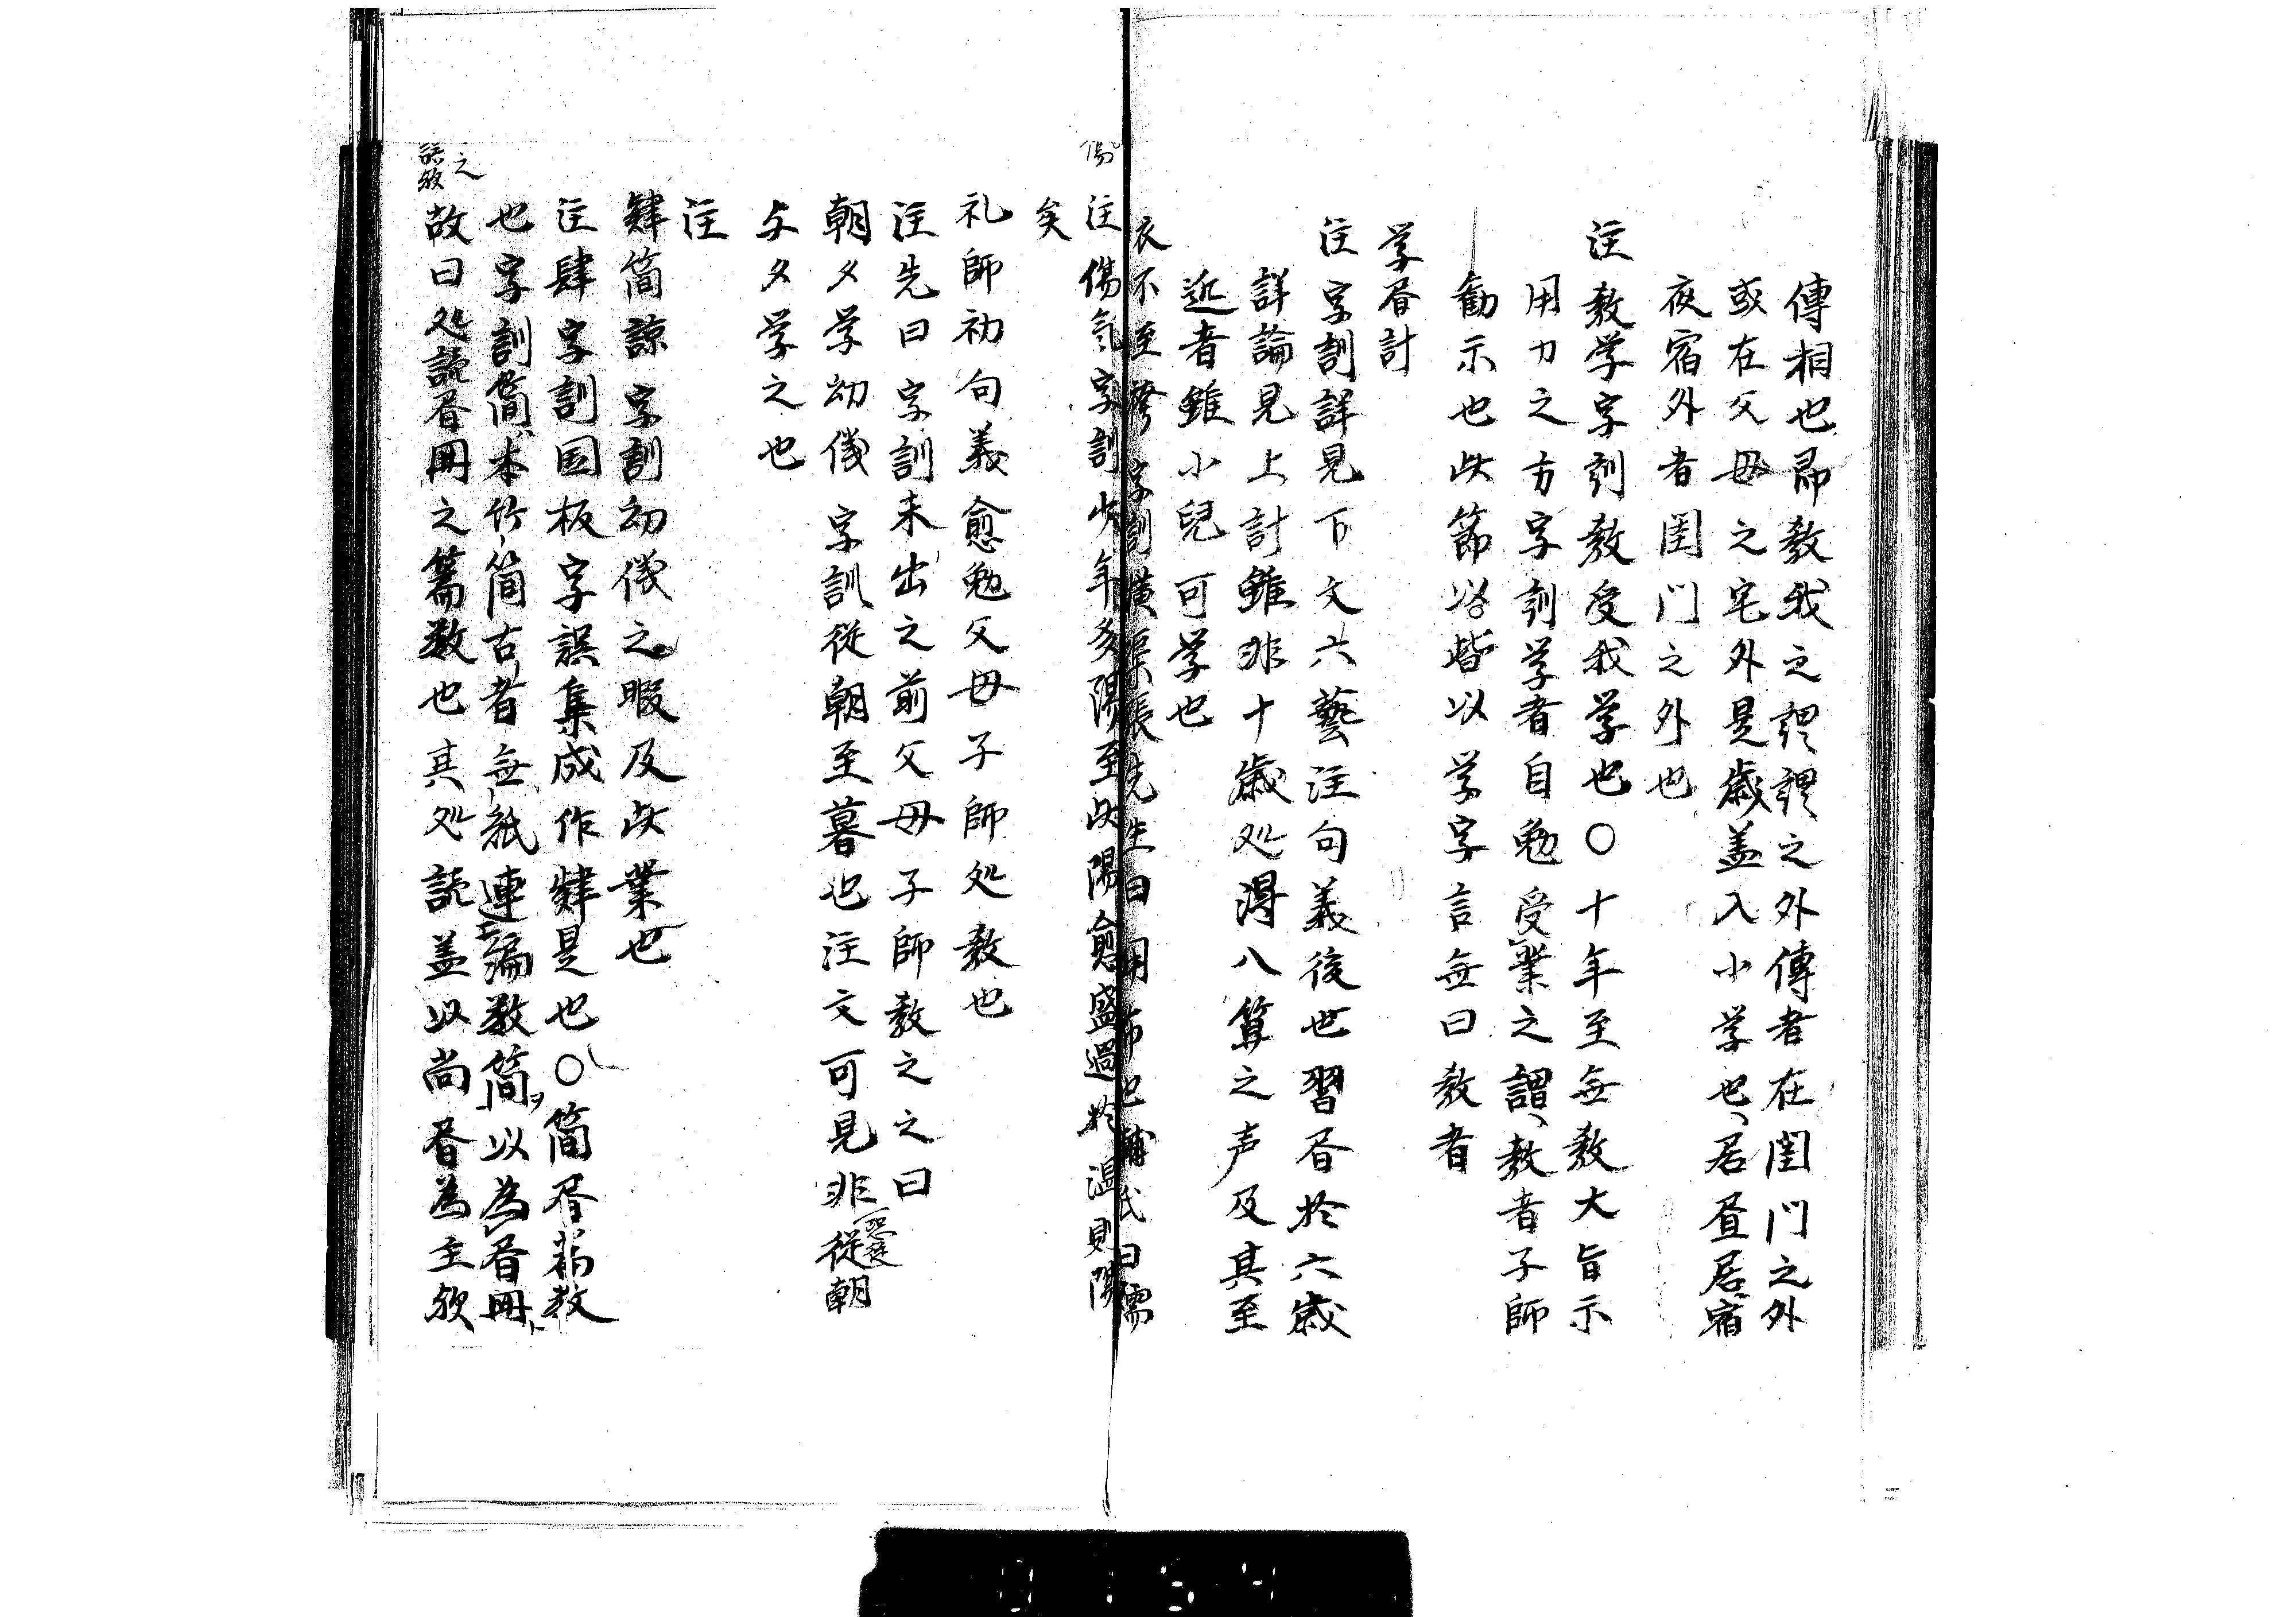 傳相也昂教我之謂謂之外傳者在閨門之外
或在父母之宅外是歳盖入小学也居昼居宿
夜宿外者閨門之外也
注教学字訓教受我学也〇十年至無教大旨示
用力之方字訓学者自勉受業之謂教者子師
勧示也此節以皆以学字言無曰教者
学昏計
注字訓詳見下文六藝注句義後世習昏於六歳
詳論見上計雖非十歳処得八算之声及其至
近者雖小兒可学也
衣不至字訓横渠張先生曰用布也輔氏曰儒
注傷気字訓少年多陽至此陽愈盛過於温則陽
傷
矣
礼師初句義愈勉父母子師処教也
注先曰字訓未出之前父母子師教之之曰
朝夕学幼儀字訓従朝至暮也注文可見非従朝
与夕学之也
注
肄簡諒字訓幼儀之暇及此業也
注肆字訓国板字誤集成作肄是也〇簡昏篇数
也字訓簡本竹簡古者無紙連編数簡以為昏冊
故曰処読昏冊之篇数也其処読盖以尚昏為主歟
之